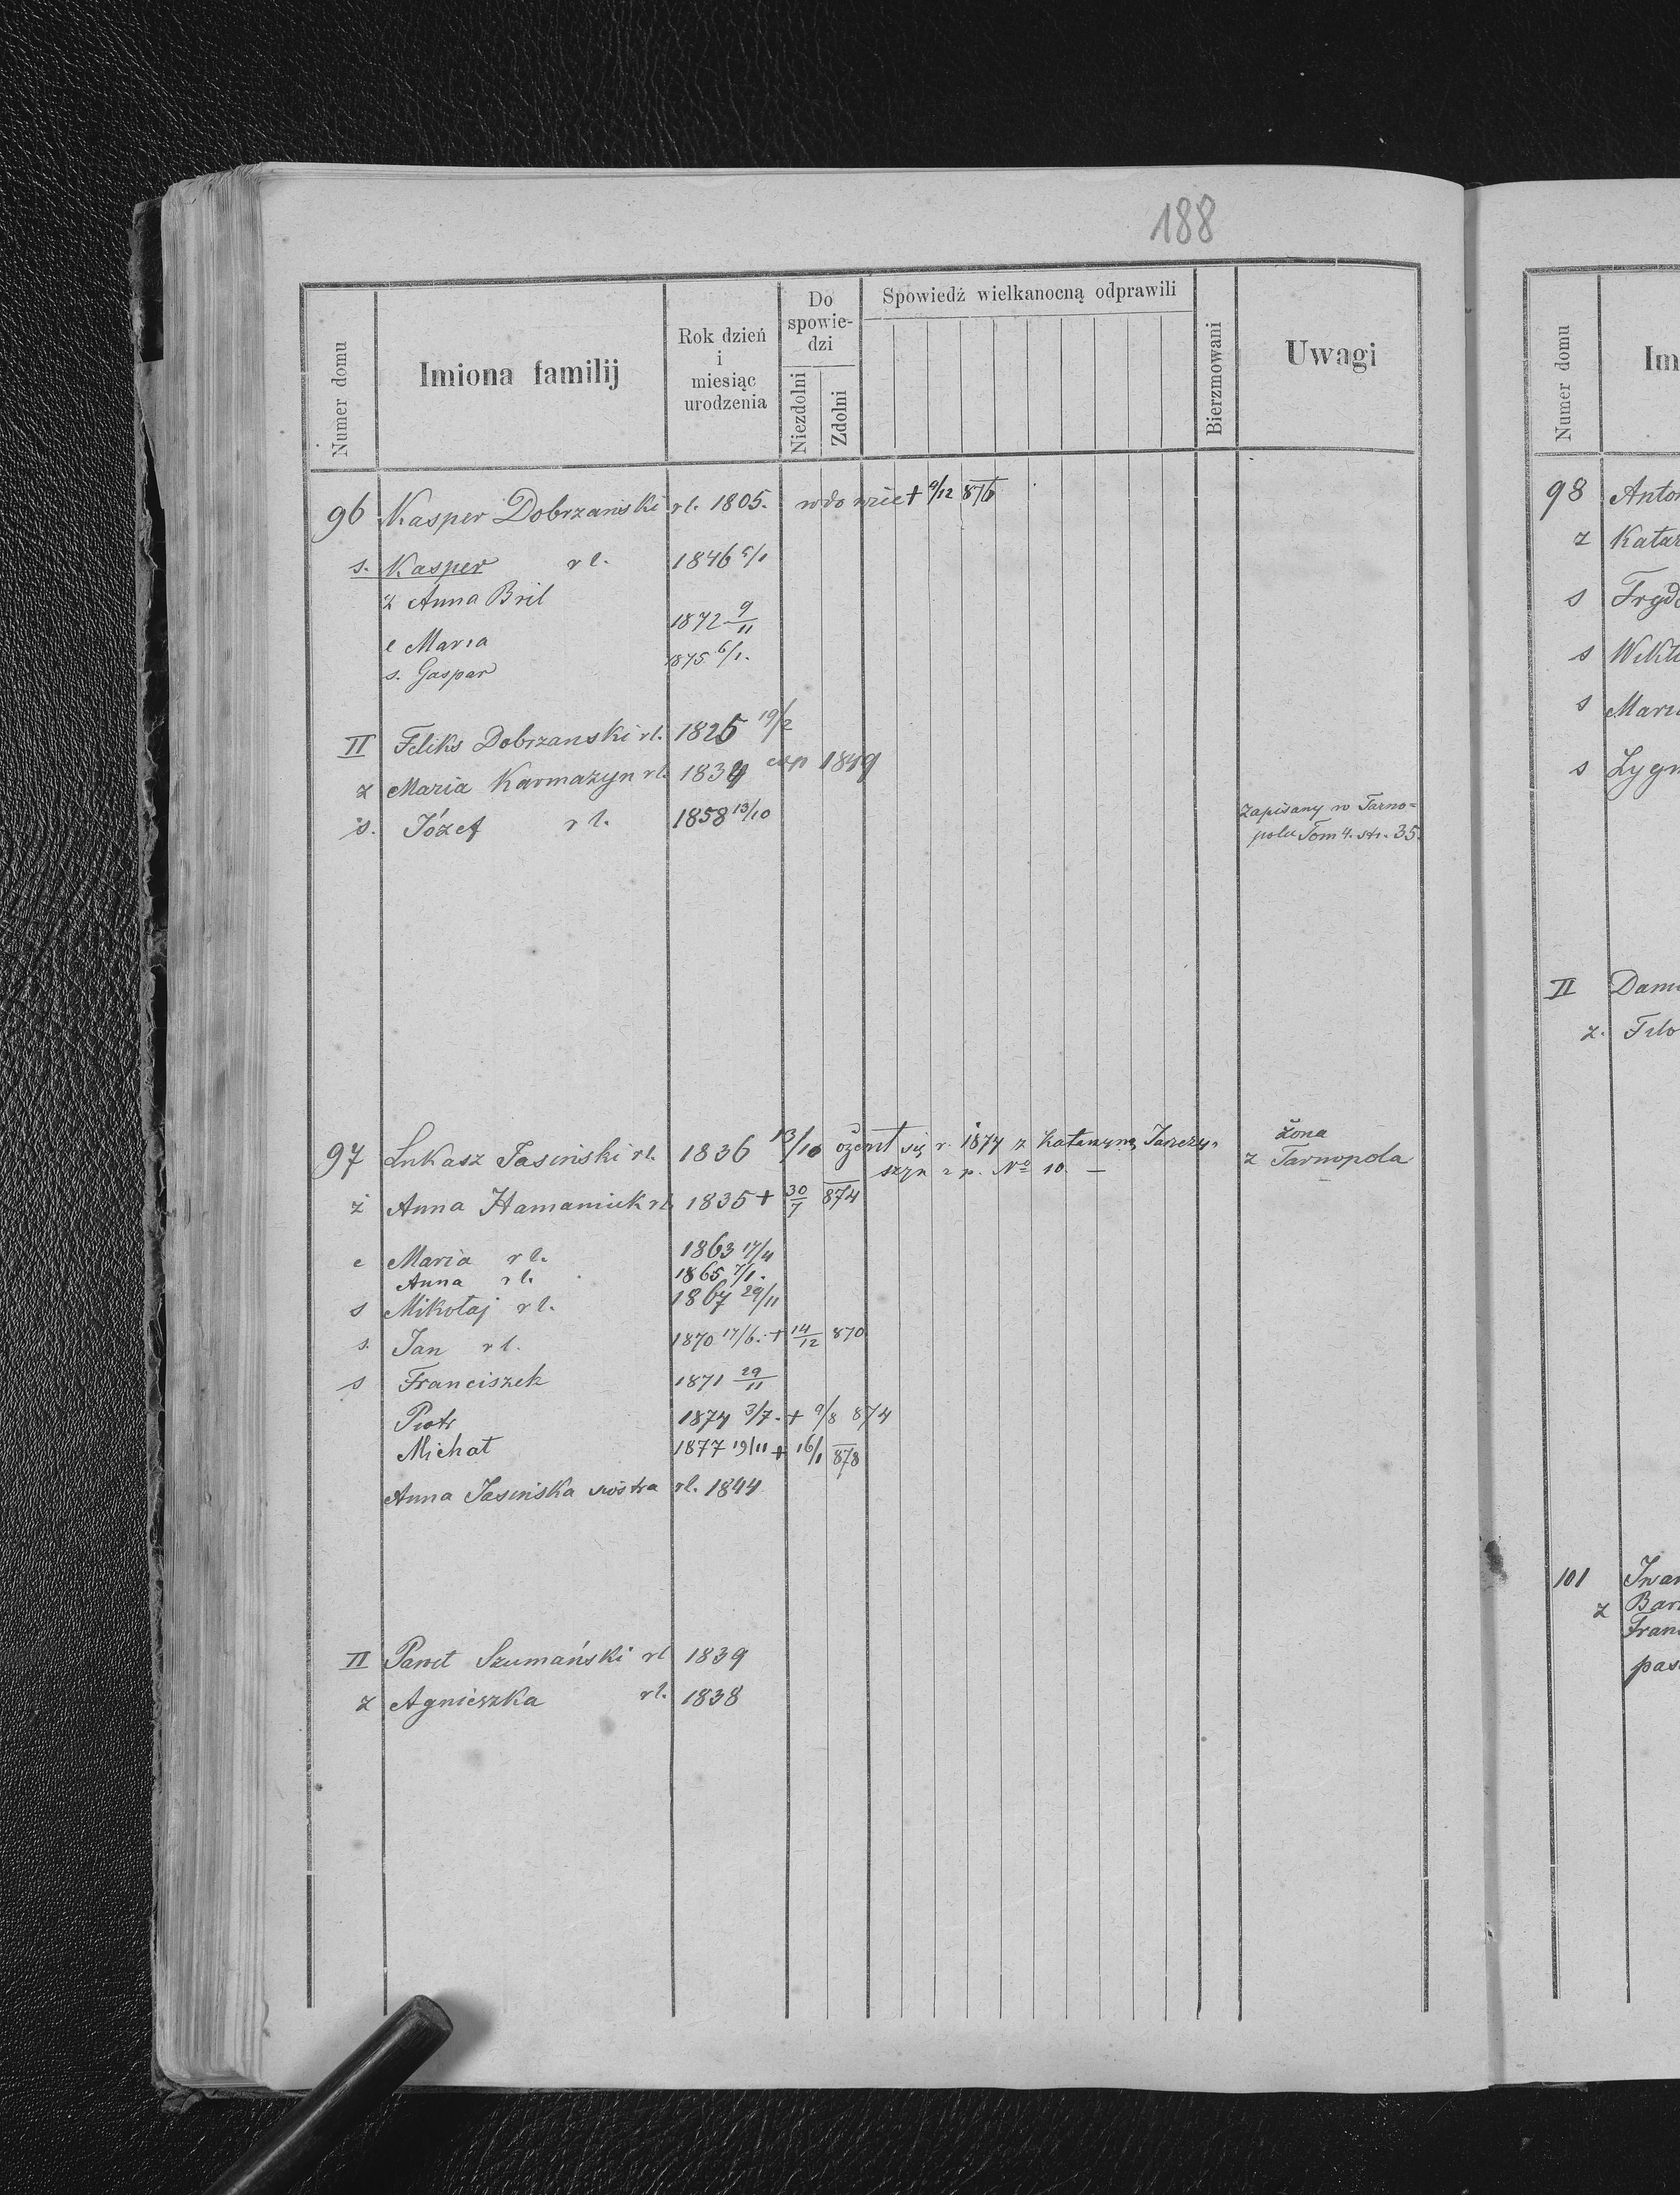 188
Numer domu
Imiona familij
Rok dzień i miesiąc urodzenia
Do spowiedzi
Niezdolni
Zdolni
Spowiedź wielkanocną odprawili
Bierzmowani
Uwagi
96 Kasper Dobrzański rl. 1805. wdowiec + 9/12 876
s. Kasper rl. 1846 6/1
ż Anna Bril
c Maria 1872 9/11
s. Gaspar 1875 6/1.
II Feliks Dobrzanski rl. 1825 19/2
ż Maria Karmazyn rl. 1834 cop 1849
s. Józef rl. 1858 13/10 Zapisany w Tarno=
polu Tom 4. str. 35.
97 Łukasz Jasiński rl. 1836 13/10 ożenił się r. 1874 z Katarzyną żona
szyn z p. No 10. — z Tarnopola
ż Anna Hamaniuk rl. 1835 + 30/7 874
c Maria rl. 1863 17/4
Anna rl. 1865 7/1.
s Mikołaj rl. 1867 29/11
s. Jan rl. 1870 17/6. + 14/12 870
s Franciszek 1871 29/11
Piotr 1874 3/7. + 9/8 874
Michał 1877 19/11 + 16/1 878
Anna Jasińska siostra rl. 1844
II Paweł Szumański rl 1839
ż Agnieszka rl. 1838
Numer domu
Im
98 Anto
ż Katar
s
s Wikto
s Mari
s Zygm
II Dani
ż.
101 Iwan
ż Bar
Fran
pas